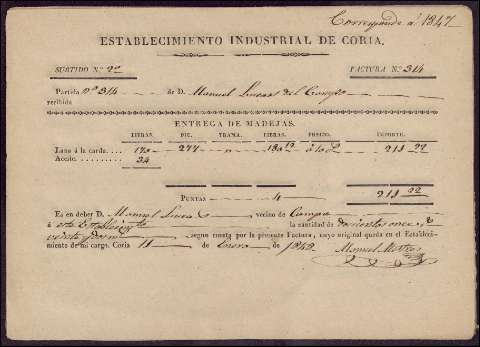 Corresponde a 1847
ESTABLECIMIENTO INDUSTRIAL DE CORIA.
SURTIDO N.º 22 FACTURA N.º 314
Partida nº 314 de D. Manuel Lucas del Campo
recibida
ENTREGA DE MADEJAS.
LIBRAS. PIE. TRAMA. LIBRAS. PRECIO. IMPORTE.
Lana á la carda. 170 277 130 á 10 211 22
Aceite. 34
PUNTAS 4 211 22
Es en deber D. Manuel Lucas vecino de Campo
á este la cantidad de doscientos once
veinte según cuenta por la presente Factura, cuyo original queda en el Estableci-
miento de mi cargo. Coria 11 de Enero de 1848
Manuel